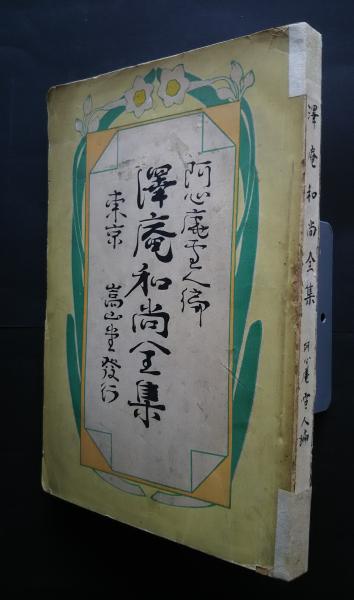 阿心庵雪人編
澤庵和尚全集
東京 嵩山堂發行
澤庵和尚全集 阿心菴雪人編